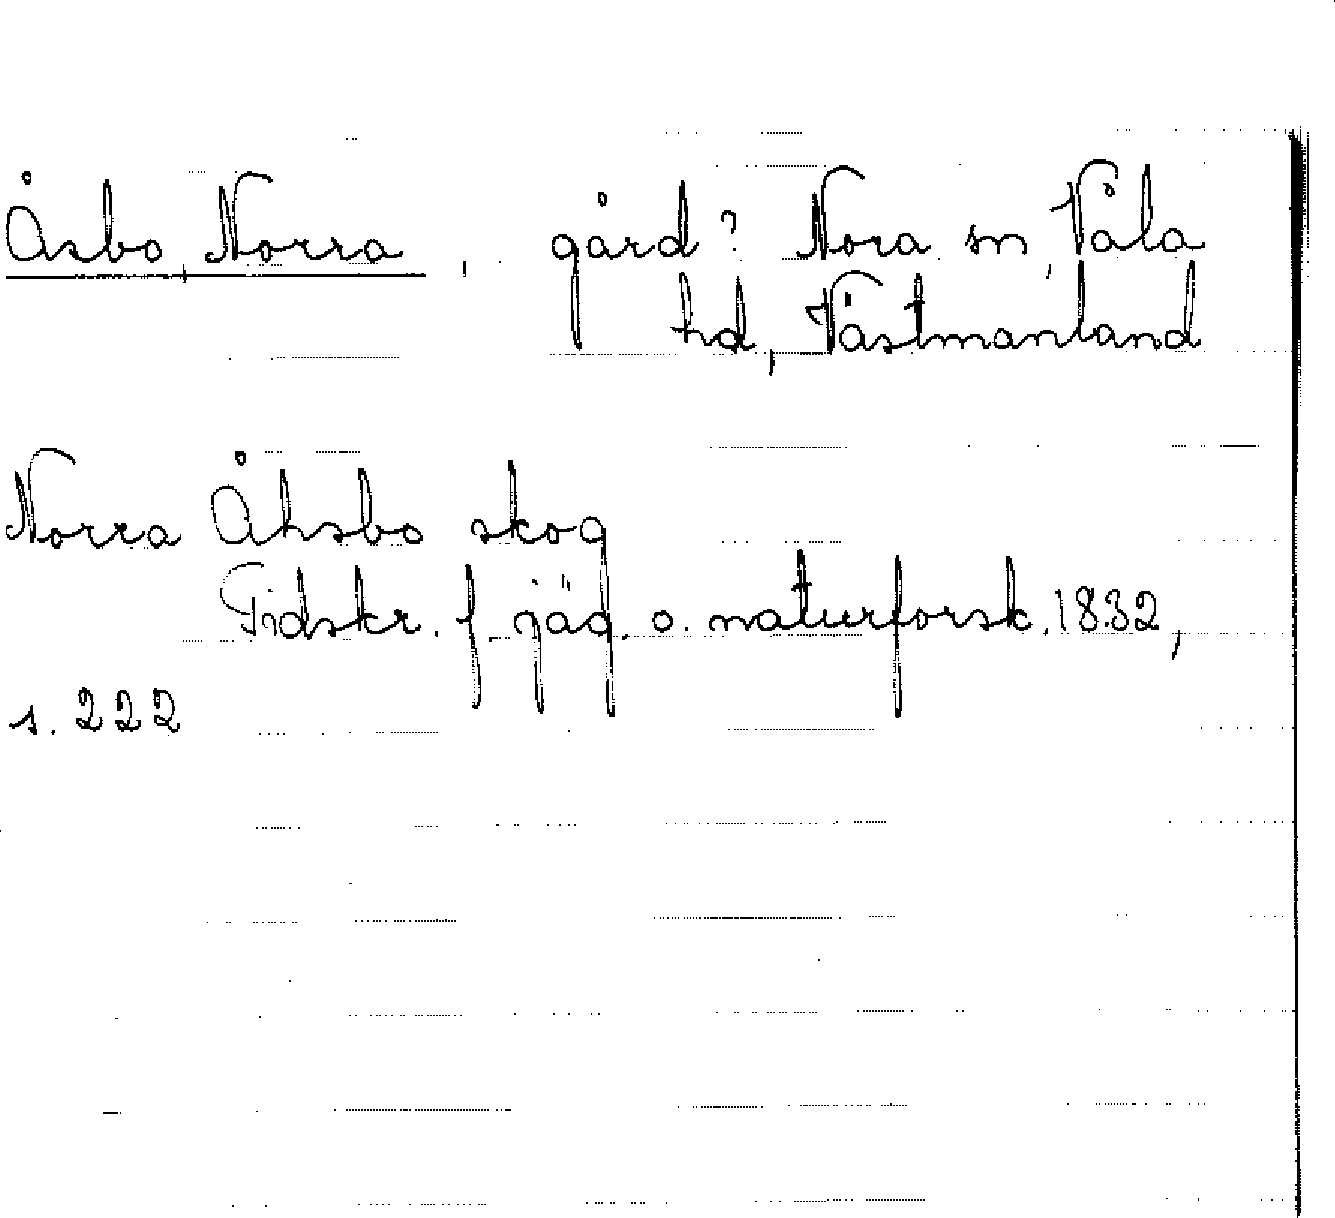 Åsbo, Norra, gård? Nora sn, Våla
hd, Västmanland
Norra Åhsbo skog
Tidskr. f. jäg. o. naturforsk. 1832,
s. 222